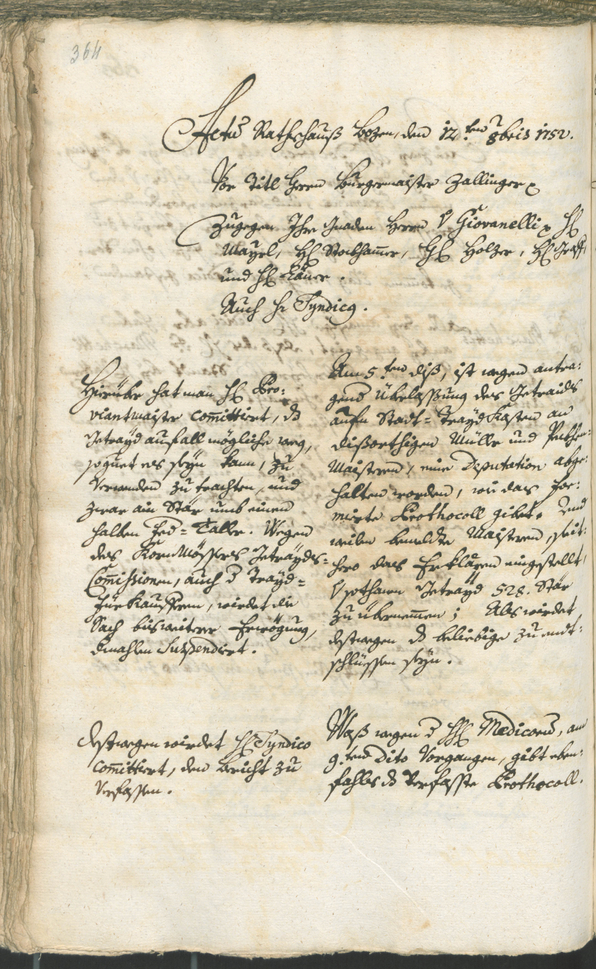 364
Actum Rathshauß Bozen, den 12.ten 8bris 1752.
Vor Titl Herrn Burgermaister Zallinger
Zugegen Ihro Gnaden Herrn v Giovanelli, H
Mayrl, H Stockhamer, H Holzer, H Graff
und H Käuer.
Auch Hr Syndicq.
Hierüber hat man H Pro-
viantmaister committiert, dß
Getrayd auf all mögliche weeg,
so guet es seyn kann, zu
Verwenden zu trachten, und
zwar ain Stär umb einen
halben Taller. Wegen
des Getrayds-
Comission, auch d Trayd-
Fürkauffern, wirdet die
Sach bis weitere Erwögung,
dermahlen Suspendiert.
Am 5.ten diß, ist wegen antra-
gend übelaßung des Getraids
aufn Statt-Traydkasten an
dißorthigen Müller und Pekhen-
Maistern, eine Deputation abge-
halten worden, wie das for-
mirte Prothocoll gibet. Und
weilen bemelte Maistern, seit-
hero das Erklären eingestellt,
sothanen Getrayd 528. Stär
zu übernemmen; Als wirdet
destwegen dß beliebige zu endt-
schlüssen seyn.
destwegen wirdet H Syndico
committiert, den bericht zu
Verfassen.
Waß wegen d HH Medicorum, am
9.ten dito Vorgangen, gibt eben-
fahls dß Verfasste Prothocoll.